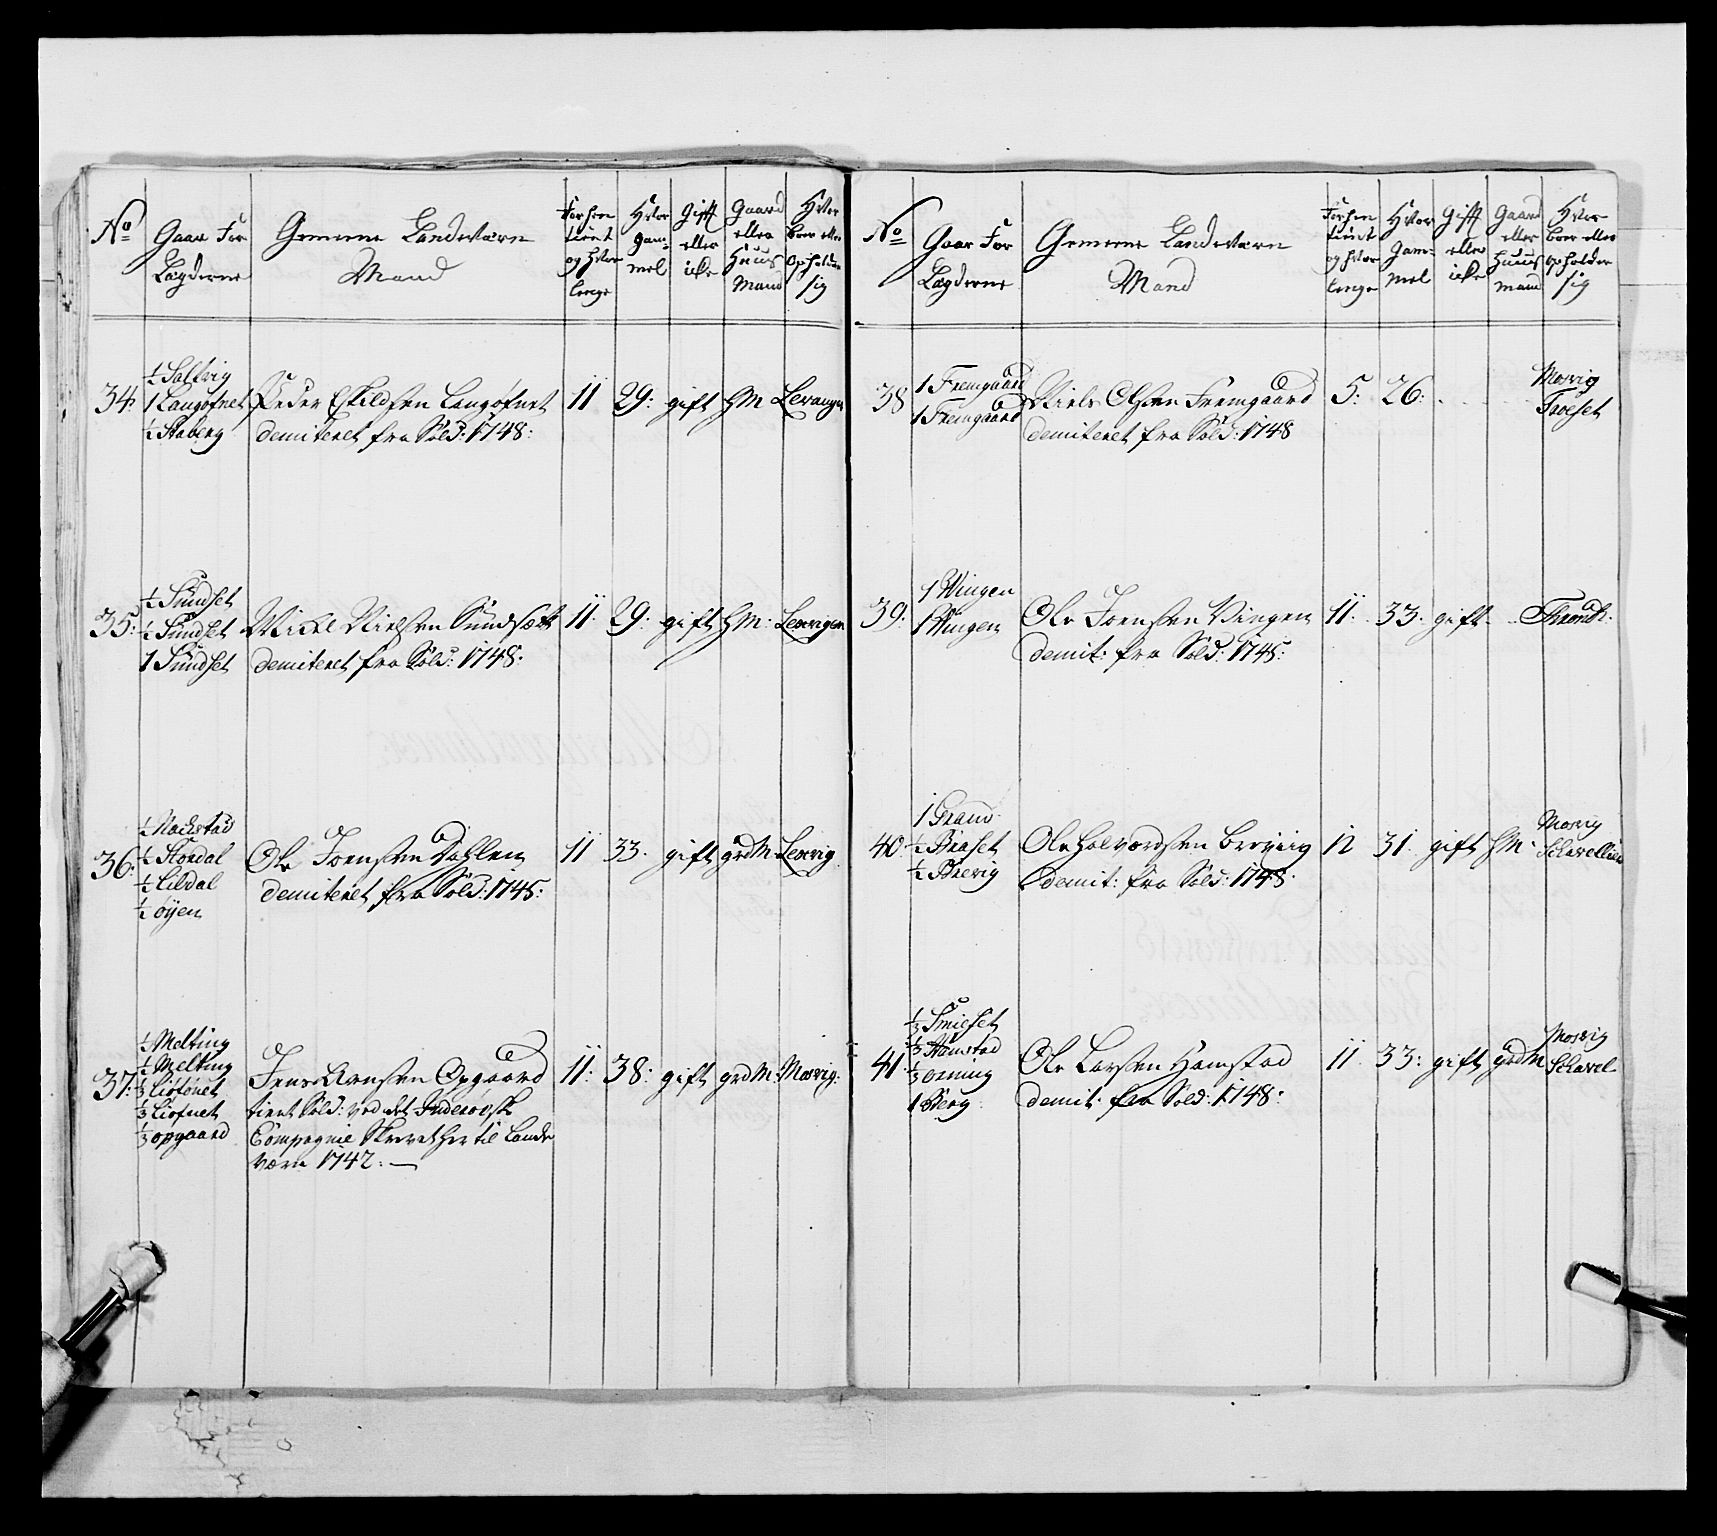 No
Gaar For
Lægderne
Gemeene Landeværn
Mand
Forhen
tient
og hvor
lenge
Hvor
gam-
mel
Gift
eller
icke
Gaard
eller
Huus
Mand
Hvor
boer eller
opholder
sig
34:
½ Saltvig
1 Langøfnet
½ Staberg
Peder Eskildsen Langøfnet
demiteret fra Sold: 1748:
11 29: gift HM Levangen
35:
½ Sundset
½ Sundset
1 Sundset
Mickel Nielsen Sundset
demiteret fra Sold: 1748:
11: 29: gift HM: Lexvigen
36:
½ Kaarstad
½ Hordal
½ Lildal
½ øyen
Ole Joensen Dahlen
demiteret fra Sold: 1745:
11 33. gift grdM Lexvig
37:
½ Melting
½ Melting
⅓ Liøfønet
⅓ Liøfnet
⅓ opgaard
Jens Arensen Opgaard
tient Sold: ved det Inderøyske
Compagnie Skrevet her til Lande
værn 1742: —
11: 38: gift grdM: Mosvig:
No
Gaar For
Lægderne
Gemeene Landeværn
Mand
Forhen
tient
og hvor
lenge
Hvor
Gam-
mel
Gift
eller
icke
Gaard
eller
Huus
mand
Hvor
boer eller
opholder
sig
38
1 Fremgaard
1 Fremgaard
Niels Olsen Fremgaard
demiteret fra Sold: 1748
5: 26:
Mosvig
Troeset
39:
1 Wingen
1 Wingen
Ole Joensen Vingen
demit: fra Sold: 1745:
11: 33: gift Trondh:
40:
1 Grand
½ Braset
½ Brevig
Ole Holvordsen Brevig
demit: fra Sold: 1748.
12 31. gift HM:
Mosvig
41
⅓ Smieset
⅓ Hamstad
⅓ orning
1 Berg
Ole Larsen Hamstad
demit: fra Sold: 1748:
11 33: gift grdM
Mosvig